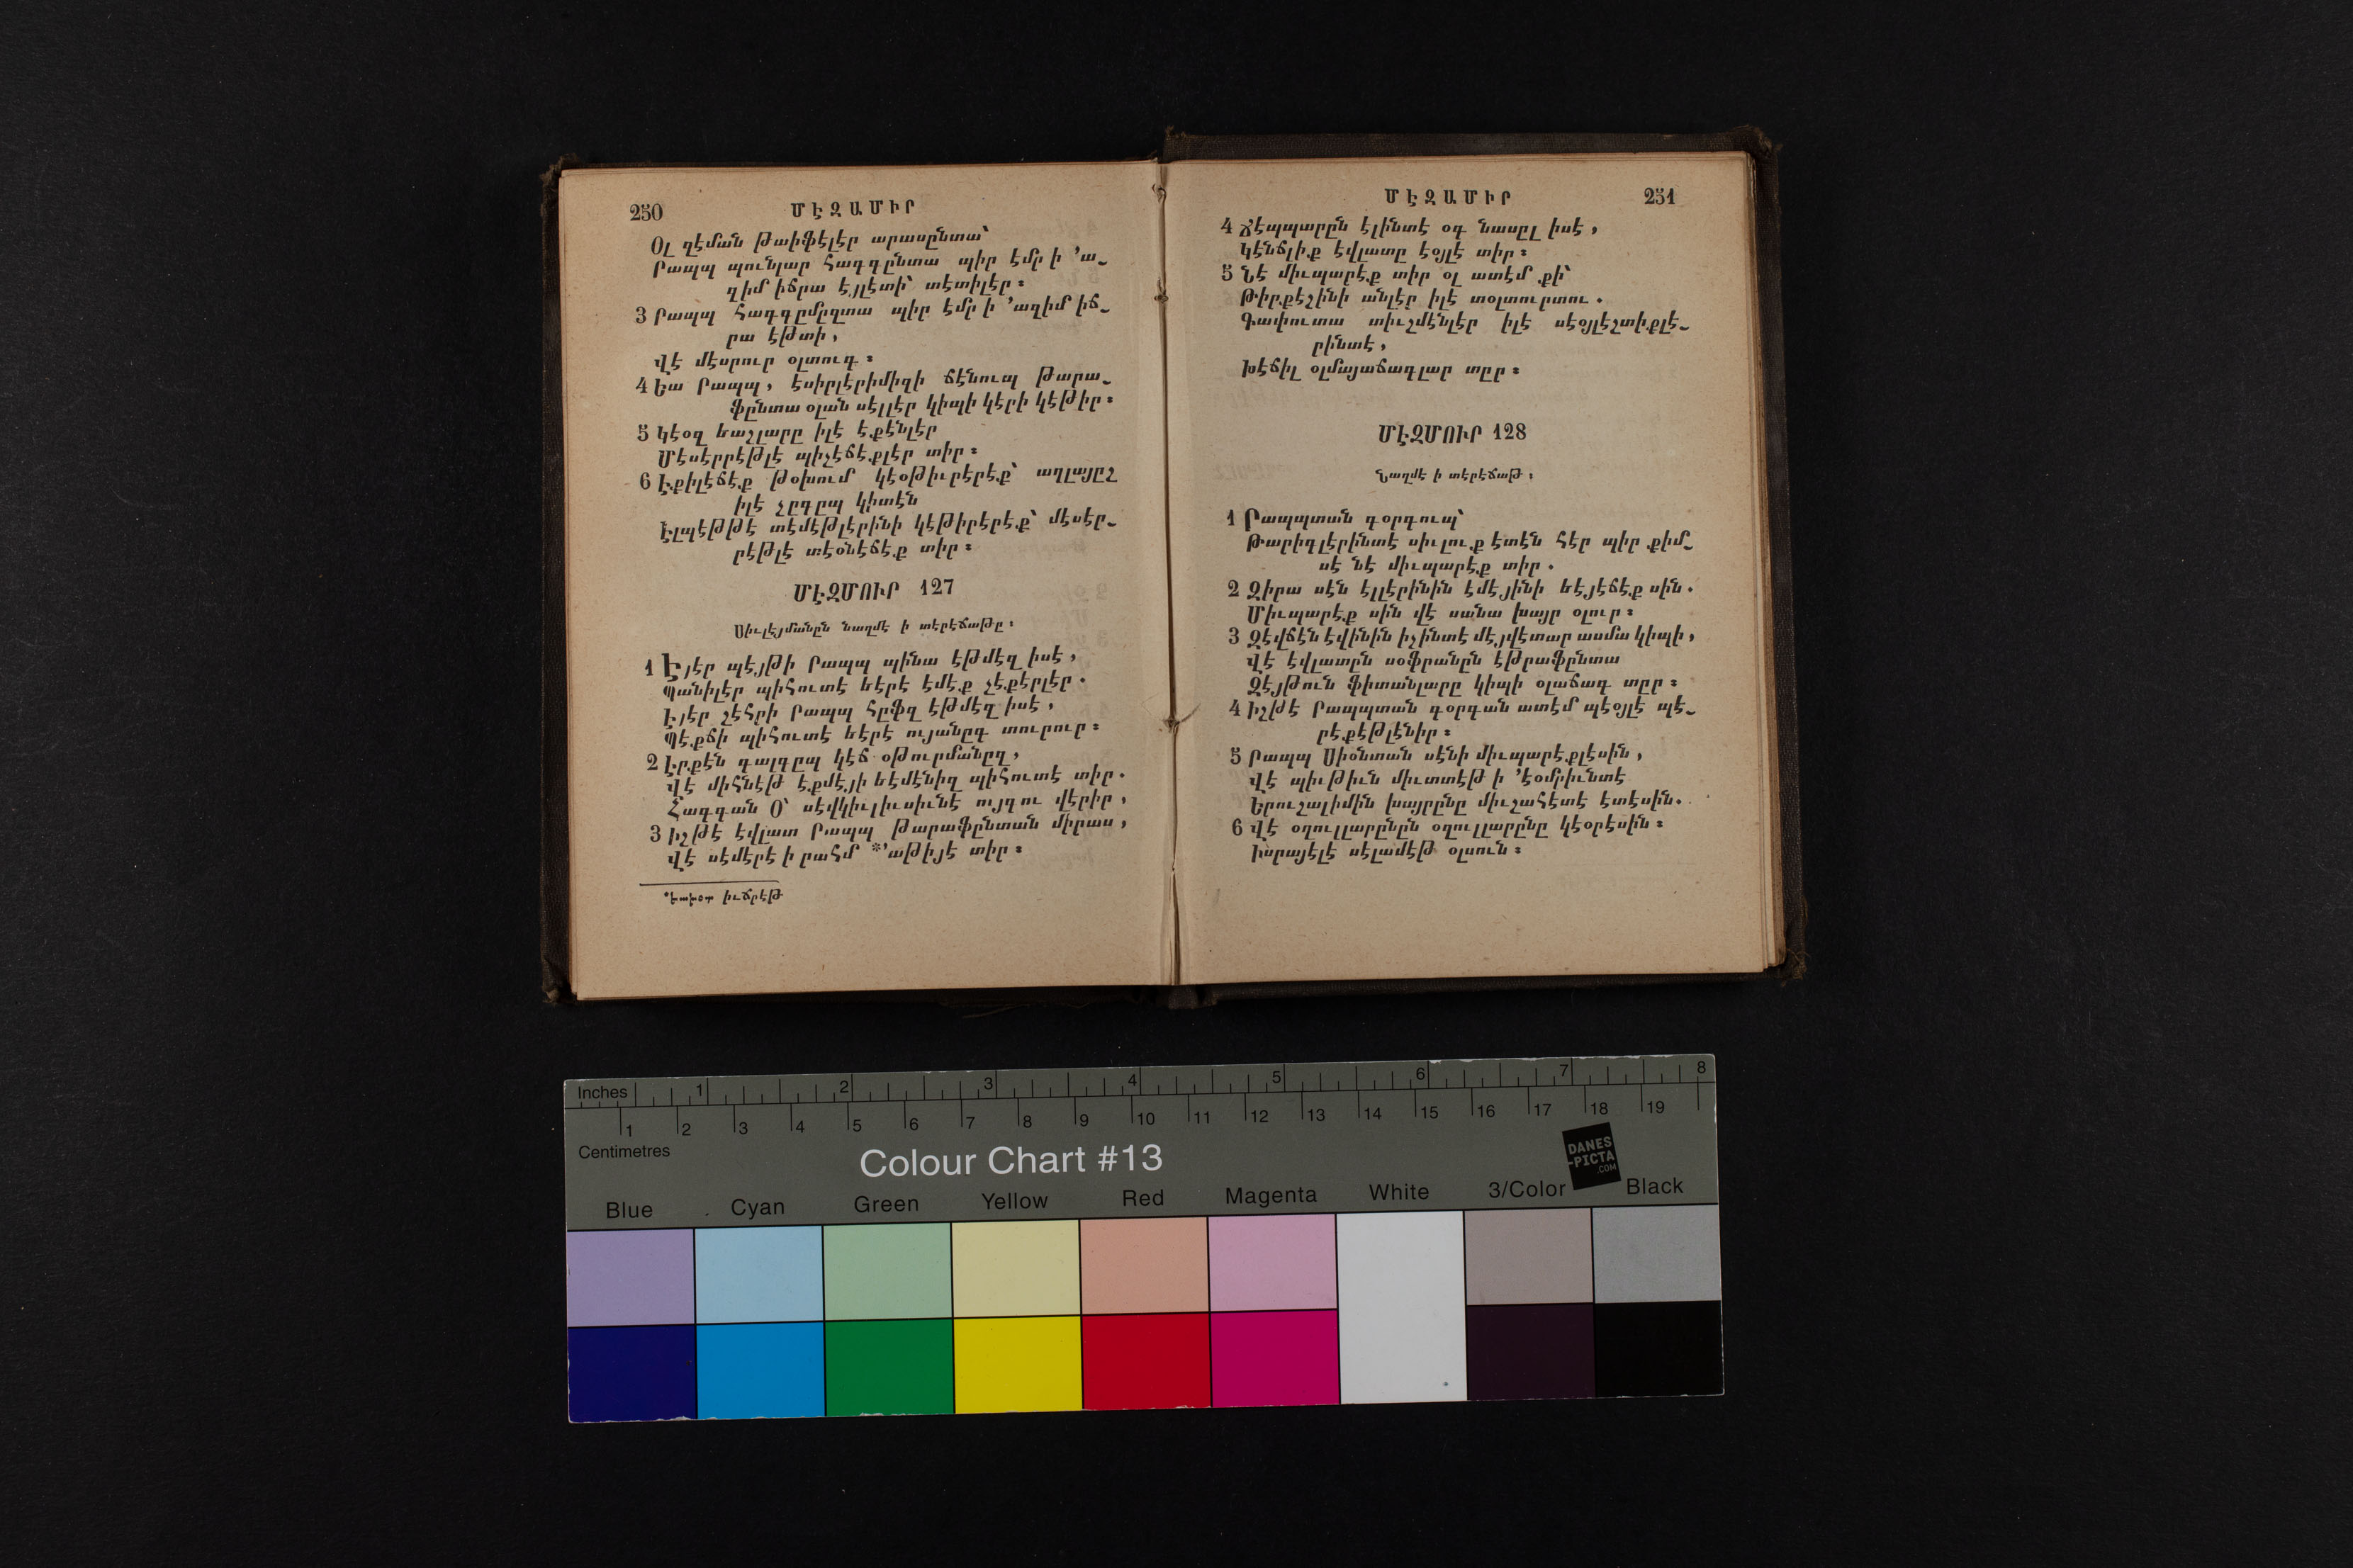 250 ՄԷԶԱՄԻՐ
Օլ զէման թաիֆէլէր արասընտա՝
Րապպ պունլար հագգընտա պիր էմր ի ՚ա֊
զիմ իճրա էյլէտի՝ տէտիլէր։
3 Րապպ հագգըմըզտա պիր էմր ի ՚ազիմ իճ֊
րա էթտի,
Վէ մէսրուր օլտուգ։
4 Եա Րապպ, էսիրլէրիմիզի ճէնուպ թարա֊
ֆընտա օլան սէլլէր կիպի կէրի կէթիր։
5 Կէօզ եաշլարը իլէ էքէնլէր
Մէսէրրէթլէ պիչէճէքլէր տիր։
6 Էքիլէճէք թօխում կէօթիւրէրէք՝ աղլայըշ
իլէ չըգըպ կիտէն
Էլպէթթէ տէմէթլէրինի կէթիրէրէք՝ մէսէր֊
րէթլէ տէօնէճէք տիր։
ՄԷԶՄՈՒՐ 127
Սիւլէյմանըն նաղմէ ի տէրէճաթը։
1 Էյէր պէյթի Րապպ պինա էթմէզ իսէ,
Պանիլէր պիհուտէ եէրէ էմէք չէքէրլէր.
Էյէր շէհրի Րապպ հըֆզ էթմէզ իսէ,
Պէքճի պիհուտէ եէրէ ույանըգ տուրուր։
2 Էրքէն գալգըպ կէճ օթուրմանըզ,
Վէ միհնէթ էքմէյի եէմէնիզ պիհուտէ տիր.
Հագգան Օ՝ սէվկիւլիւսիւնէ ույգու վէրիր,
3 Իշթէ էվլատ Րապպ թարաֆընտան միրաս,
Վէ սէմէրէ ի րահմ *՚աթիյէ տիր։
*եախօտ իւճրէթ
ՄԷԶԱՄԻՐ 251
4 Ճէպպարըն էլինտէ օգ նասըլ իսէ,
Կէնճլիք էվլատը էօյլէ տիր։
5 Նէ միւպարէք տիր օլ ատէմ քի՝
Թիրքէշինի անլէր իլէ տօլտուրտու.
Գափուտա տիւշմէնլէր իլէ սէօյլէշտիքլէ֊
րինտէ,
Խէճիլ օլմայաճագլար տըր։
ՄԷԶՄՈՒՐ 128
Նաղմէ ի տէրէճաթ,
1 Րապպտան գօրգուպ՝
Թարիգլէրինտէ սիւլուք էտէն հէր պիր քիմ֊
սէ նէ միւպարէք տիր.
2 Զիրա սէն էլլէրինին էմէյինի եէյէճէք սին.
Միւպարէք սին վէ սանա խայր օլուր։
3 Զէվճէն էվինին իչինտէ մէյվէտար ասմա կիպի,
Վէ էվլատըն սօֆրանըն էթրաֆընտա
Զէյթուն ֆիտանլարը կիպի օլաճագ տըր։
4 Իշթէ Րապպտան գօրգան ատէմ պէօյլէ պէ֊
րէքէթլէնիր։
5 Րապպ Սիօնտան սէնի միւպարէքլէսին,
Վէ պիւթիւն միւտտէթ ի ՚էօմրիւնտէ
Երուշալիմին խայրընը միւշահէտէ էտէսին.
6 Վէ օղուլլարընըն օղուլլարընը կէօրէսին։
Իսրայէլէ սէլամէթ օլսուն։
Inches 1 2 3 4 5 6 7 8
1 2 3 4 5 6 7 8 9 10 11 12 13 14 15 16 17 18 19
Centimetres
Colour Chart #13
DANES
-PICTA
.COM
Blue Cyan Green Yellow Red Magenta White 3/Color Black